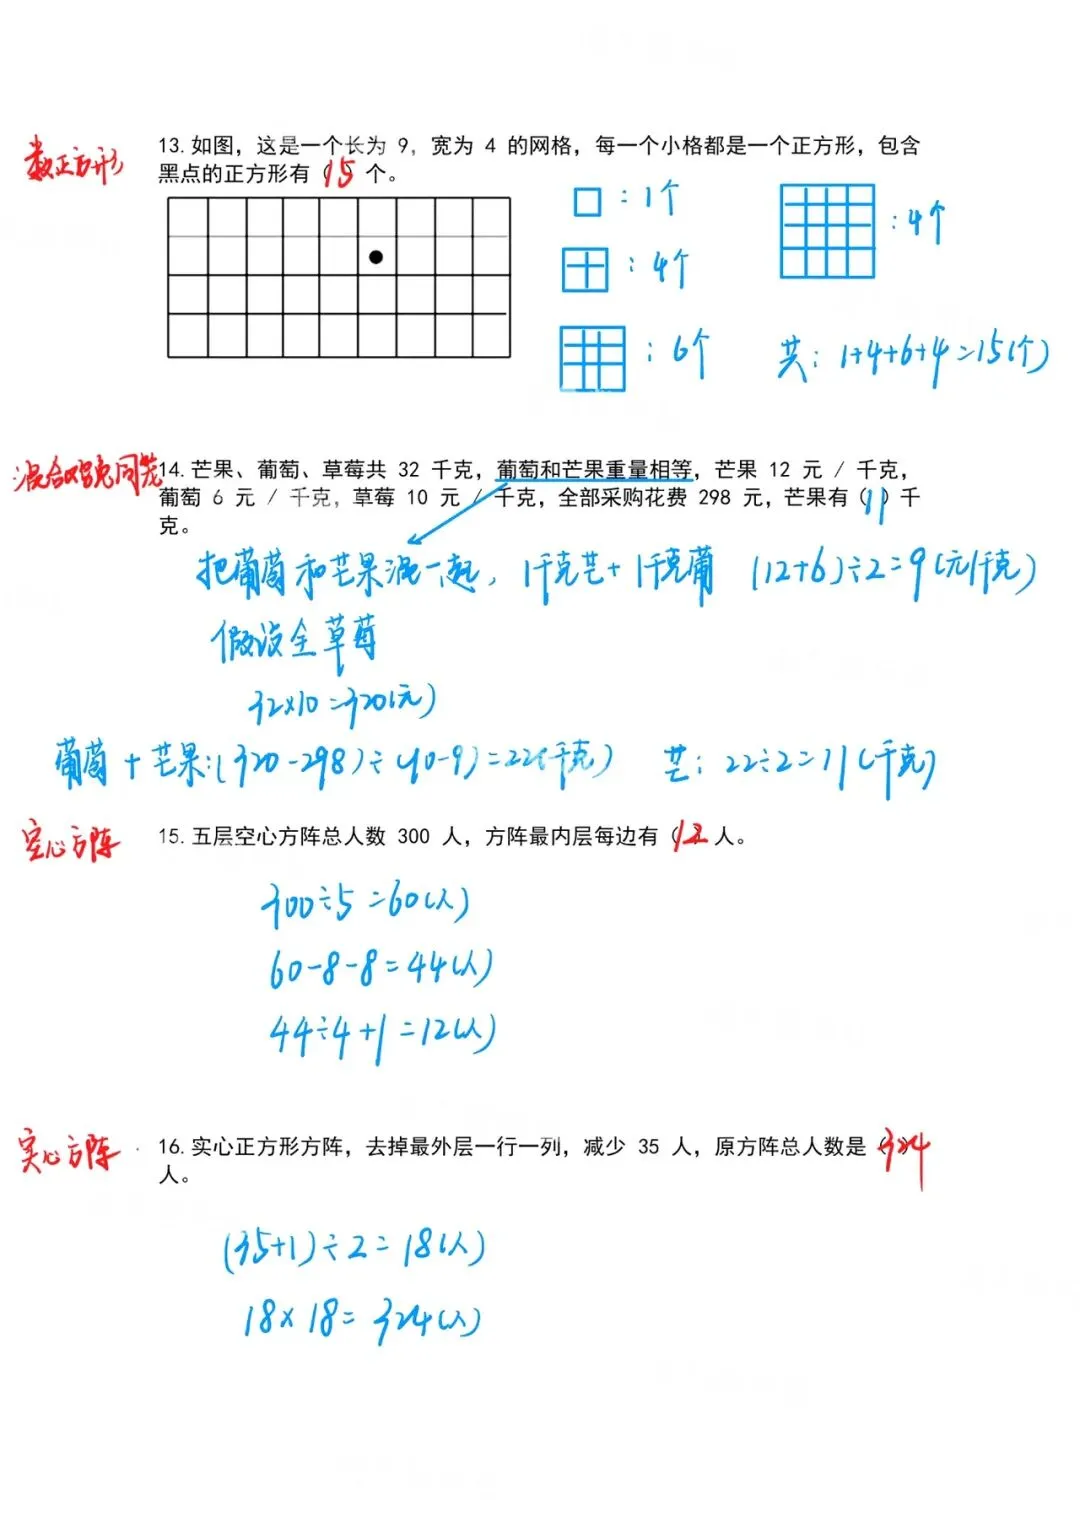 数正方形
13.如图，这是一个长为 9，宽为 4 的网格，每一个小格都是一个正方形，包含
黑点的正方形有（15）个。
：1个
：4个
：6个
：4个
共：1+4+6+4=15(个)
混合鸡兔同笼
14.芒果、葡萄、草莓共 32 千克，葡萄和芒果重量相等，芒果 12 元 / 千克，
葡萄 6 元 / 千克，草莓 10 元 / 千克，全部采购花费 298 元，芒果有（11）千
克。
把葡萄和芒果混一起，1千克芒+1千克葡 (12+6)÷2=9(元/千克)
假设全草莓
32×10=320(元)
葡萄+芒果：(320-298)÷(10-9)=22(千克) 芒：22÷2=11(千克)
空心方阵
15.五层空心方阵总人数 300 人，方阵最内层每边有（12）人。
300÷5=60(人)
60-8-8=44(人)
44÷4+1=12(人)
实心方阵
16.实心正方形方阵，去掉最外层一行一列，减少 35 人，原方阵总人数是（324）
人。
(35+1)÷2=18(人)
18×18=324(人)